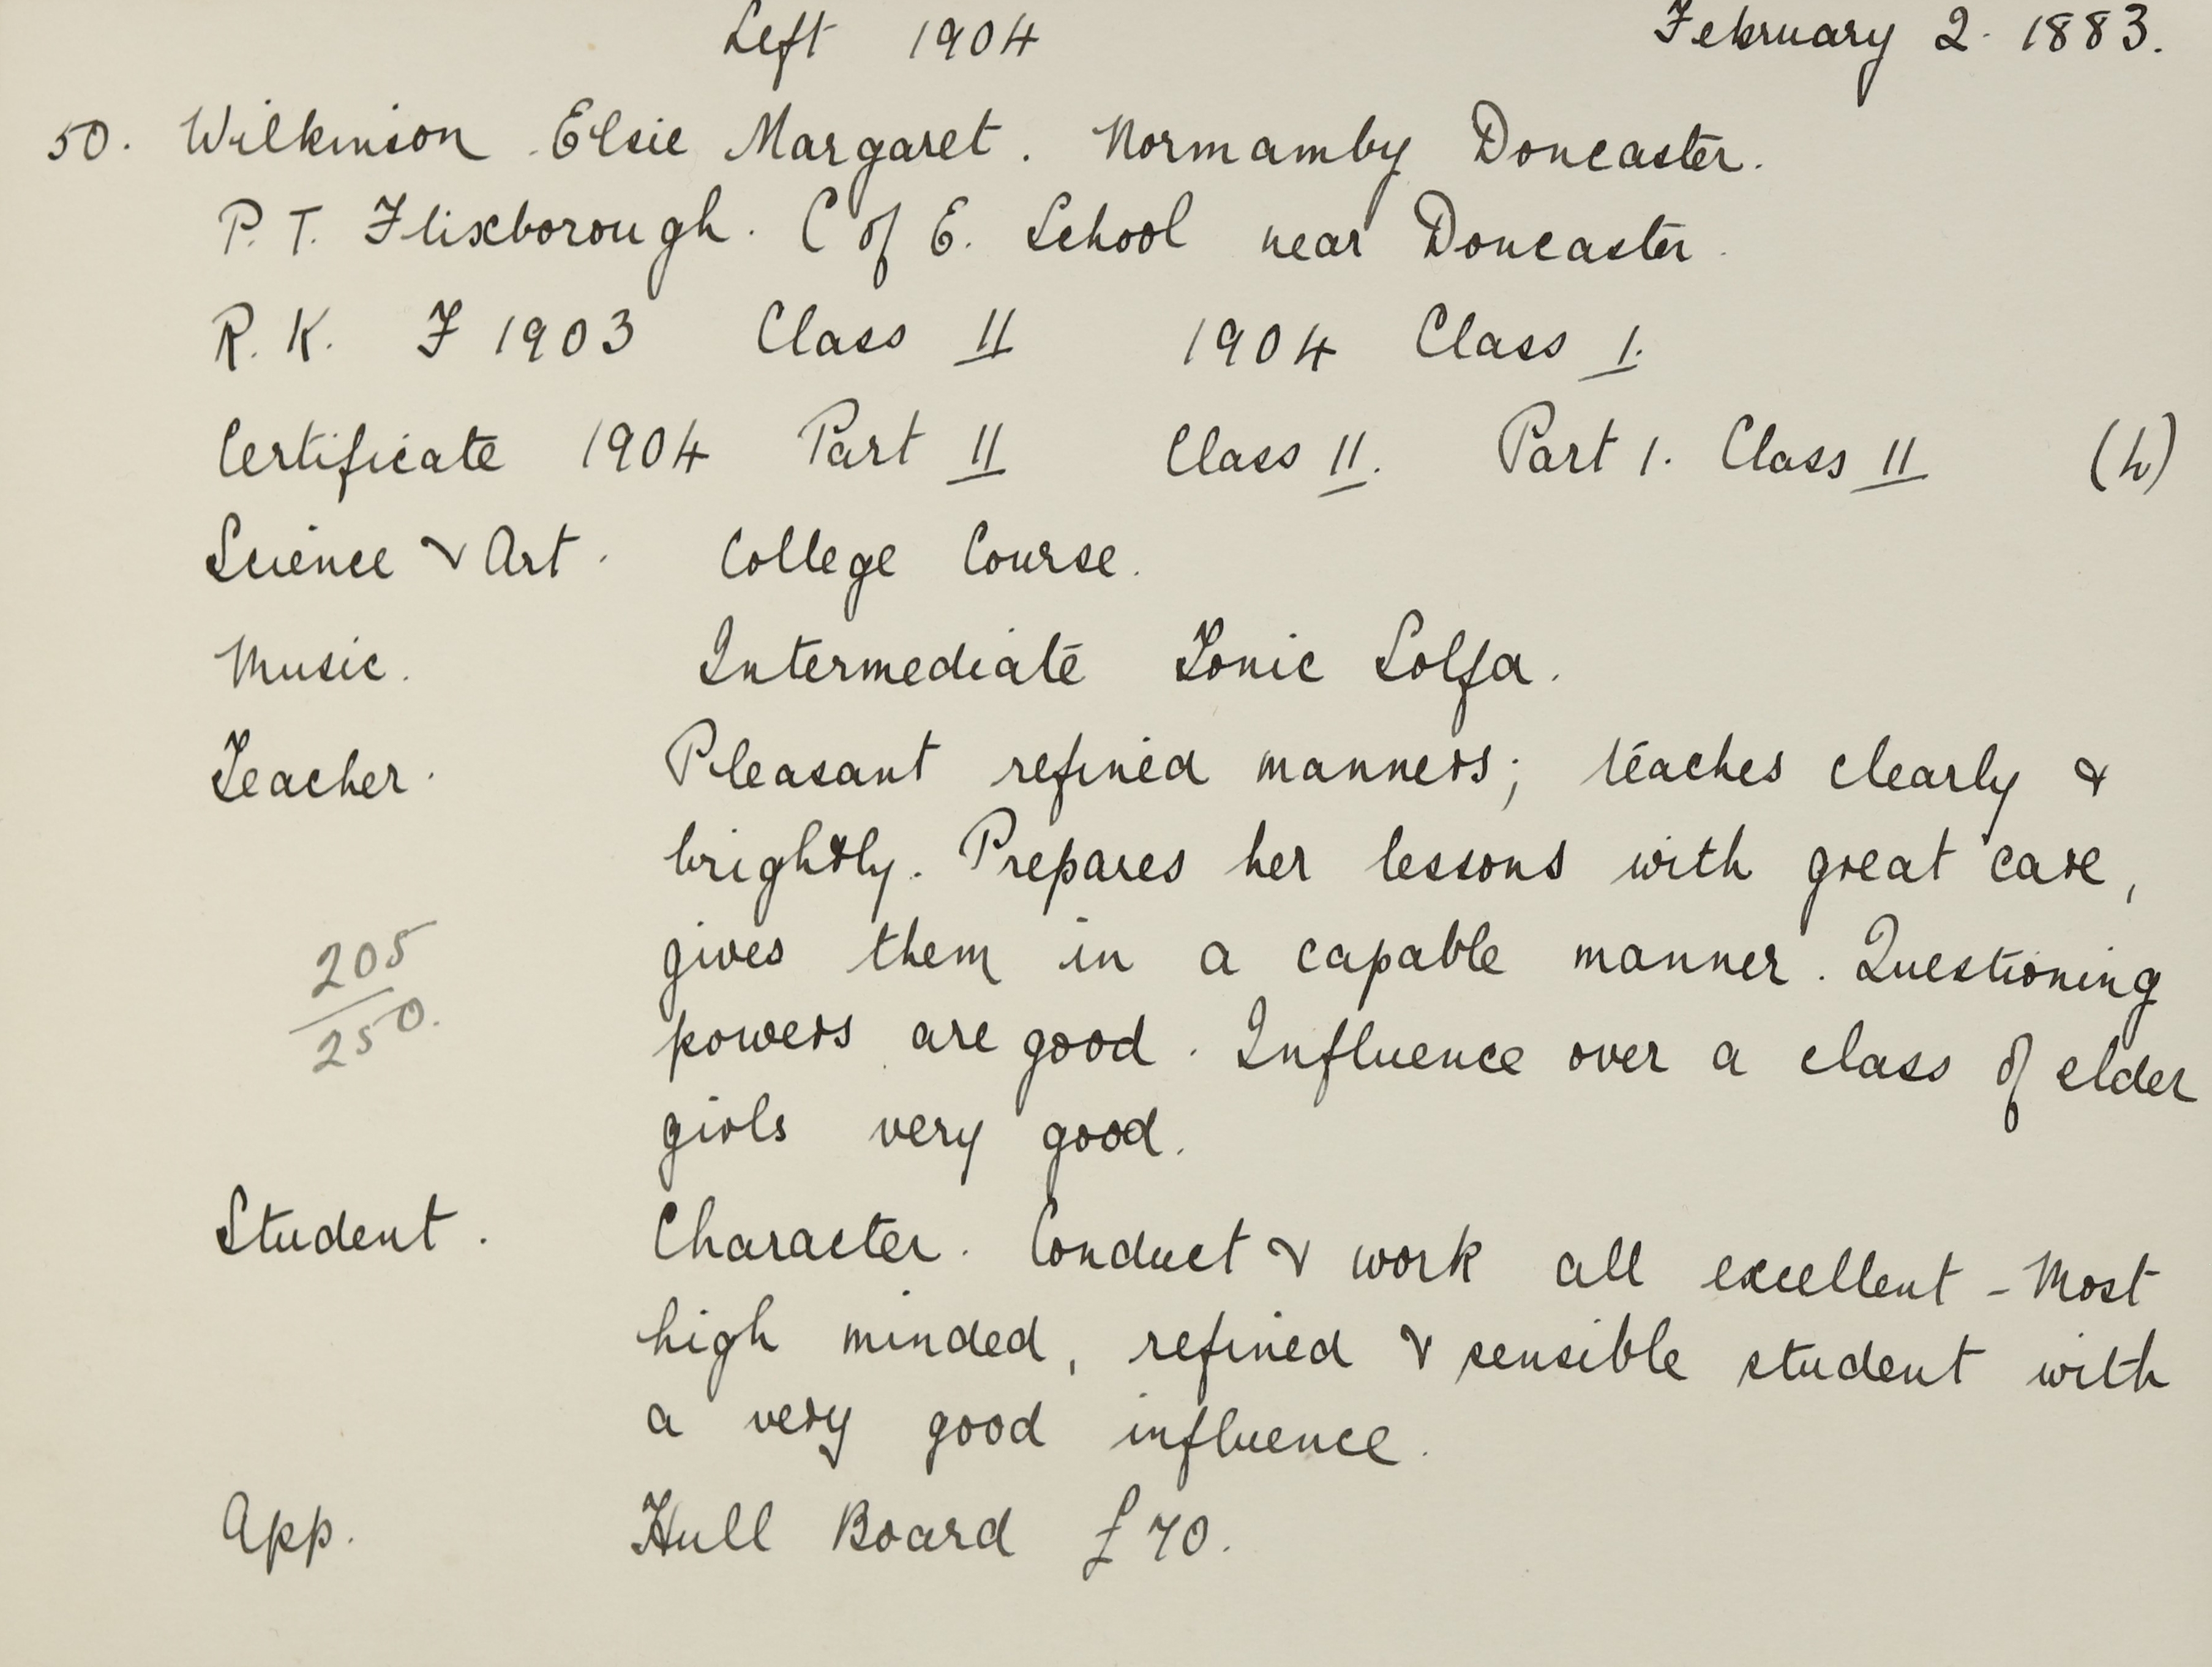 Left 1904 February 2. 1883.
50. Wilkinson Elsie Margaret. Normamby Doncaster.
P. T. Flixborough. C of E. School near Doncaster.
R. K. F 1903 Class II 1904 Class I.
Certificate 1904 Part II Class II. Part I. Class II (h)
Science & Art. College Course.
Music. Intermediate Tonic Solfa.
Teacher. Pleasant refined manners; teaches clearly &
brightly. Prepares her lessons with great care,
gives them in a capable manner. Questioning
205
250.
powers are good. Influence over a class of elder
girls very good.
Student. Character. Conduct & work all excellent - Most
high minded, refined & sensible student with
a very good influence.
App. Hull Board £70.